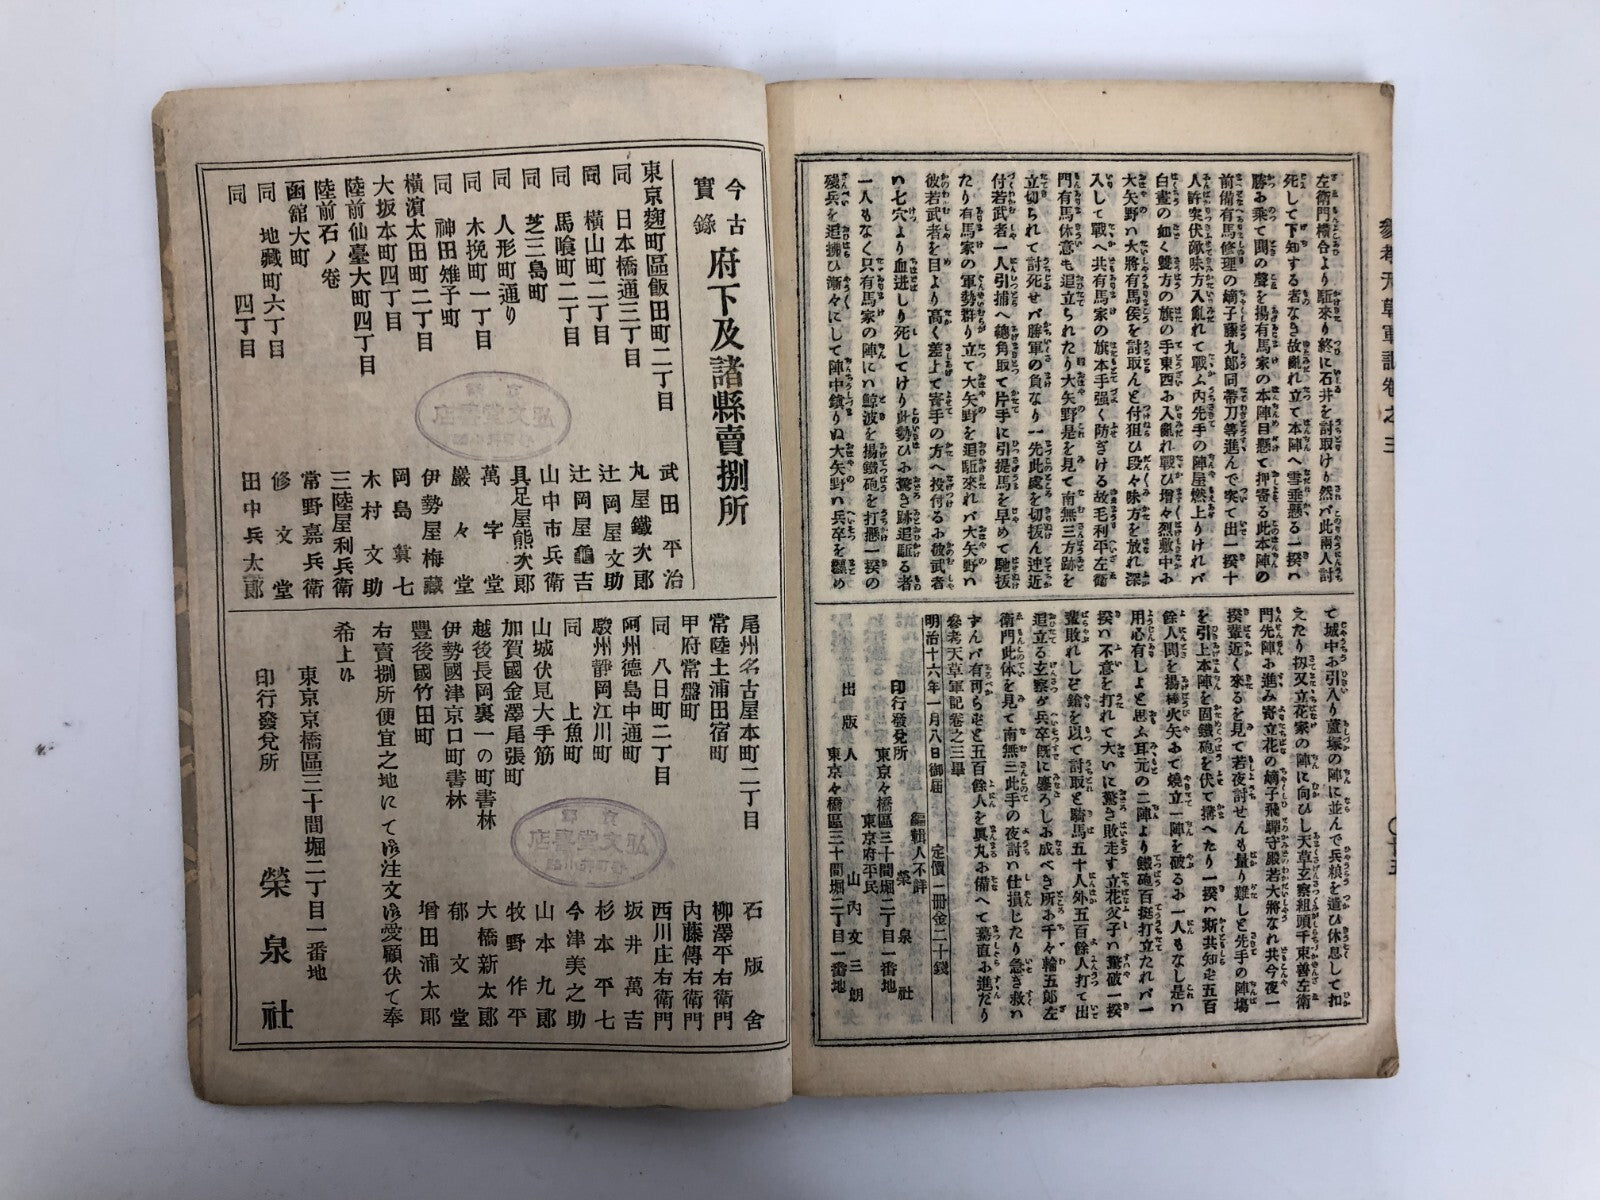 左衛門横合より駈來り終に石井を討取けり然バ此兩人討
死して下知する者なき故亂れ立て本陣へ雪垂懸る一揆ハ
勝お乘て鬨の聲を揚有馬家の本陣目懸て押寄る此本陣の
前備有馬修理の嫡子藤九郎同帶刀等進んで突て出一揆十
人許突伏敵味方入亂れて戰ふ内先手の陣屋燃上りけれバ
白晝の如く雙方の旗の手東西お入亂れ戰ひ增々烈敷中お
大矢野ハ大將有馬侯を討取んと付狙ひ段々味方を放れ深
入して戰へ共有馬家の旗本手强く防ぎける故毛利平左衛
門有馬休意も追立られたり大矢野是を見て南無三方跡を
立切られて討死せバ勝軍の負なり一先此處を切拔ん迚近
付若武者一人引捕へ總角取て片手に引提馬を早めて馳拔
たり有馬家の軍勢群り立て大矢野を追駈來れバ大矢野ハ
彼若武者を目より高く差上て寄手の方へ投付るお敵武者
ハ七穴より血迸しり死してけり此勢ひお驚き跡追駈る者
一人もなく只有馬家の陣にハ鯨波を揚鐵砲を打懸一揆の
殘兵を追拂ひ漸々にして陣中鎭りぬ大矢野ハ兵卒を纒め
て城中お引入り蘆塚の陣に並んで兵粮を遣ひ休息して扣
えたり扨又立花家の陣に向ひし天草玄察組頭千束善左衛
門先陣お進み寄立花の嫡子飛驒守殿若大將なれ共今夜一
揆輩近く來るを見て若夜討せんも量り難しと先手の陣塲
を引上本陣を固鐵砲を伏て搆へたり一揆ハ斯共知ず五百
餘人鬨を揚棒火矢おて燒立一陣を破るお一人もなし是ハ
用心有しよと思ふ耳元の二陣より鐵砲百挺打立たれバ一
揆ハ不意を打れて大いに驚き敗走す立花父子ハ驚破一揆
輩敗れしぞ鎗を以て討取と騎馬五十人外五百餘人打て出
追立る玄察が兵卒既に鏖ろしお成べき所お千々輪五郎左
衛門此体を見て南無三此手の夜討ハ仕損じたり急ぎ救ハ
ずんバ有可らずと五百餘人を眞丸お備へて驀直お進だり
參考天草軍記卷之三畢
明治十六年一月八日御届　定價二冊金二十錢
編輯人不詳
印行發兌所　榮泉社
東京々橋區三十間堀二丁目一番地
東京府平民
出版人　山内文三郎
東京々橋區三十間堀二丁目一番地
今古實錄　府下及諸縣賣捌所
東京麴町區飯田町二丁目　武田平治
同　日本橋通三丁目　丸屋鐵次郎
同　橫山町二丁目　辻岡屋文助
同　馬喰町二丁目　辻岡屋龜吉
同　芝三島町　山中市兵衛
同　人形町通り　具足屋熊次郎
同　木挽町一丁目　萬字堂
同　神田雉子町　巖々堂
橫濱太田町二丁目　伊勢屋梅藏
大坂本町四丁目　岡島眞七
陸前仙臺大町四丁目　木村文助
陸前石ノ卷　三陸屋利兵衛
函館大町　常野嘉兵衛
同　地藏町六丁目　修文堂
同　四丁目　田中兵太郎
尾州名古屋本町二丁目　石版舍
常陸土浦田宿町　柳澤平右衛門
甲府常盤町　内藤傳右衛門
同　八日町二丁目　西川庄右衛門
阿州德島中通町　坂井萬吉
駿州靜岡江川町　杉本平七
同　上魚町　今津美之助
山城伏見大手筋　山本九郎
加賀國金澤尾張町　牧野作平
越後長岡裏一の町書林　大橋新太郎
伊勢國津京口町書林　郁文堂
豐後國竹田町　增田浦太郎
右賣捌所便宜之地にて御注文御愛顧伏て奉
希上候
東京京橋區三十間堀二丁目一番地
印行發兌所　榮泉社
弘文堂書店
弘文堂書店